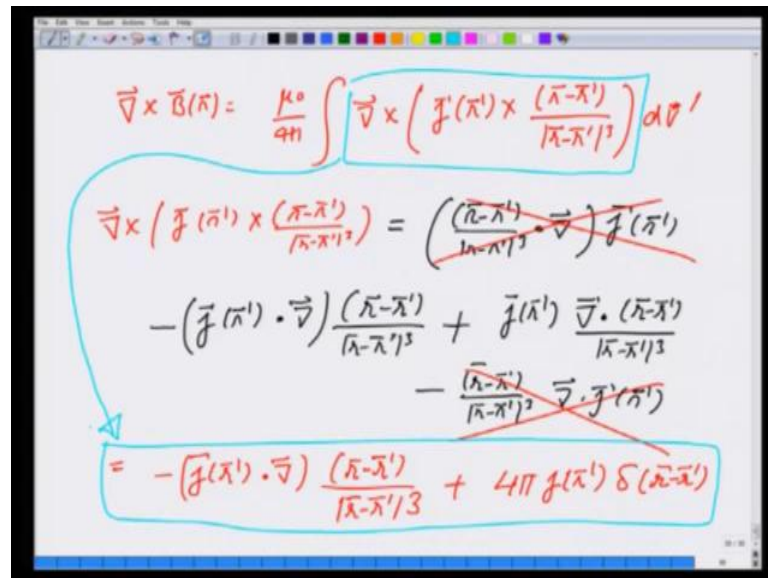 File Edit View Insert Actions Tools Help
∇⃗ × B̄(r̄) = μ₀/4π ∫ ∇⃗ × ( j̄(r̄') × (r̄-r̄')/|r̄-r̄'|³ ) dv'
∇⃗ × ( j̄(r̄') × (r̄-r̄')/|r̄-r̄'|³ ) = ( (r̄-r̄')/|r̄-r̄'|³ · ∇⃗ ) j̄(r̄')
-( j̄(r̄') · ∇⃗ ) (r̄-r̄')/|r̄-r̄'|³ + j̄(r̄') ∇⃗ · (r̄-r̄')/|r̄-r̄'|³
- (r̄-r̄')/|r̄-r̄'|³ ∇⃗ · j̄(r̄')
= -( j̄(r̄') · ∇⃗ ) (r̄-r̄')/|r̄-r̄'|³ + 4π j(r̄') δ(r̄-r̄')